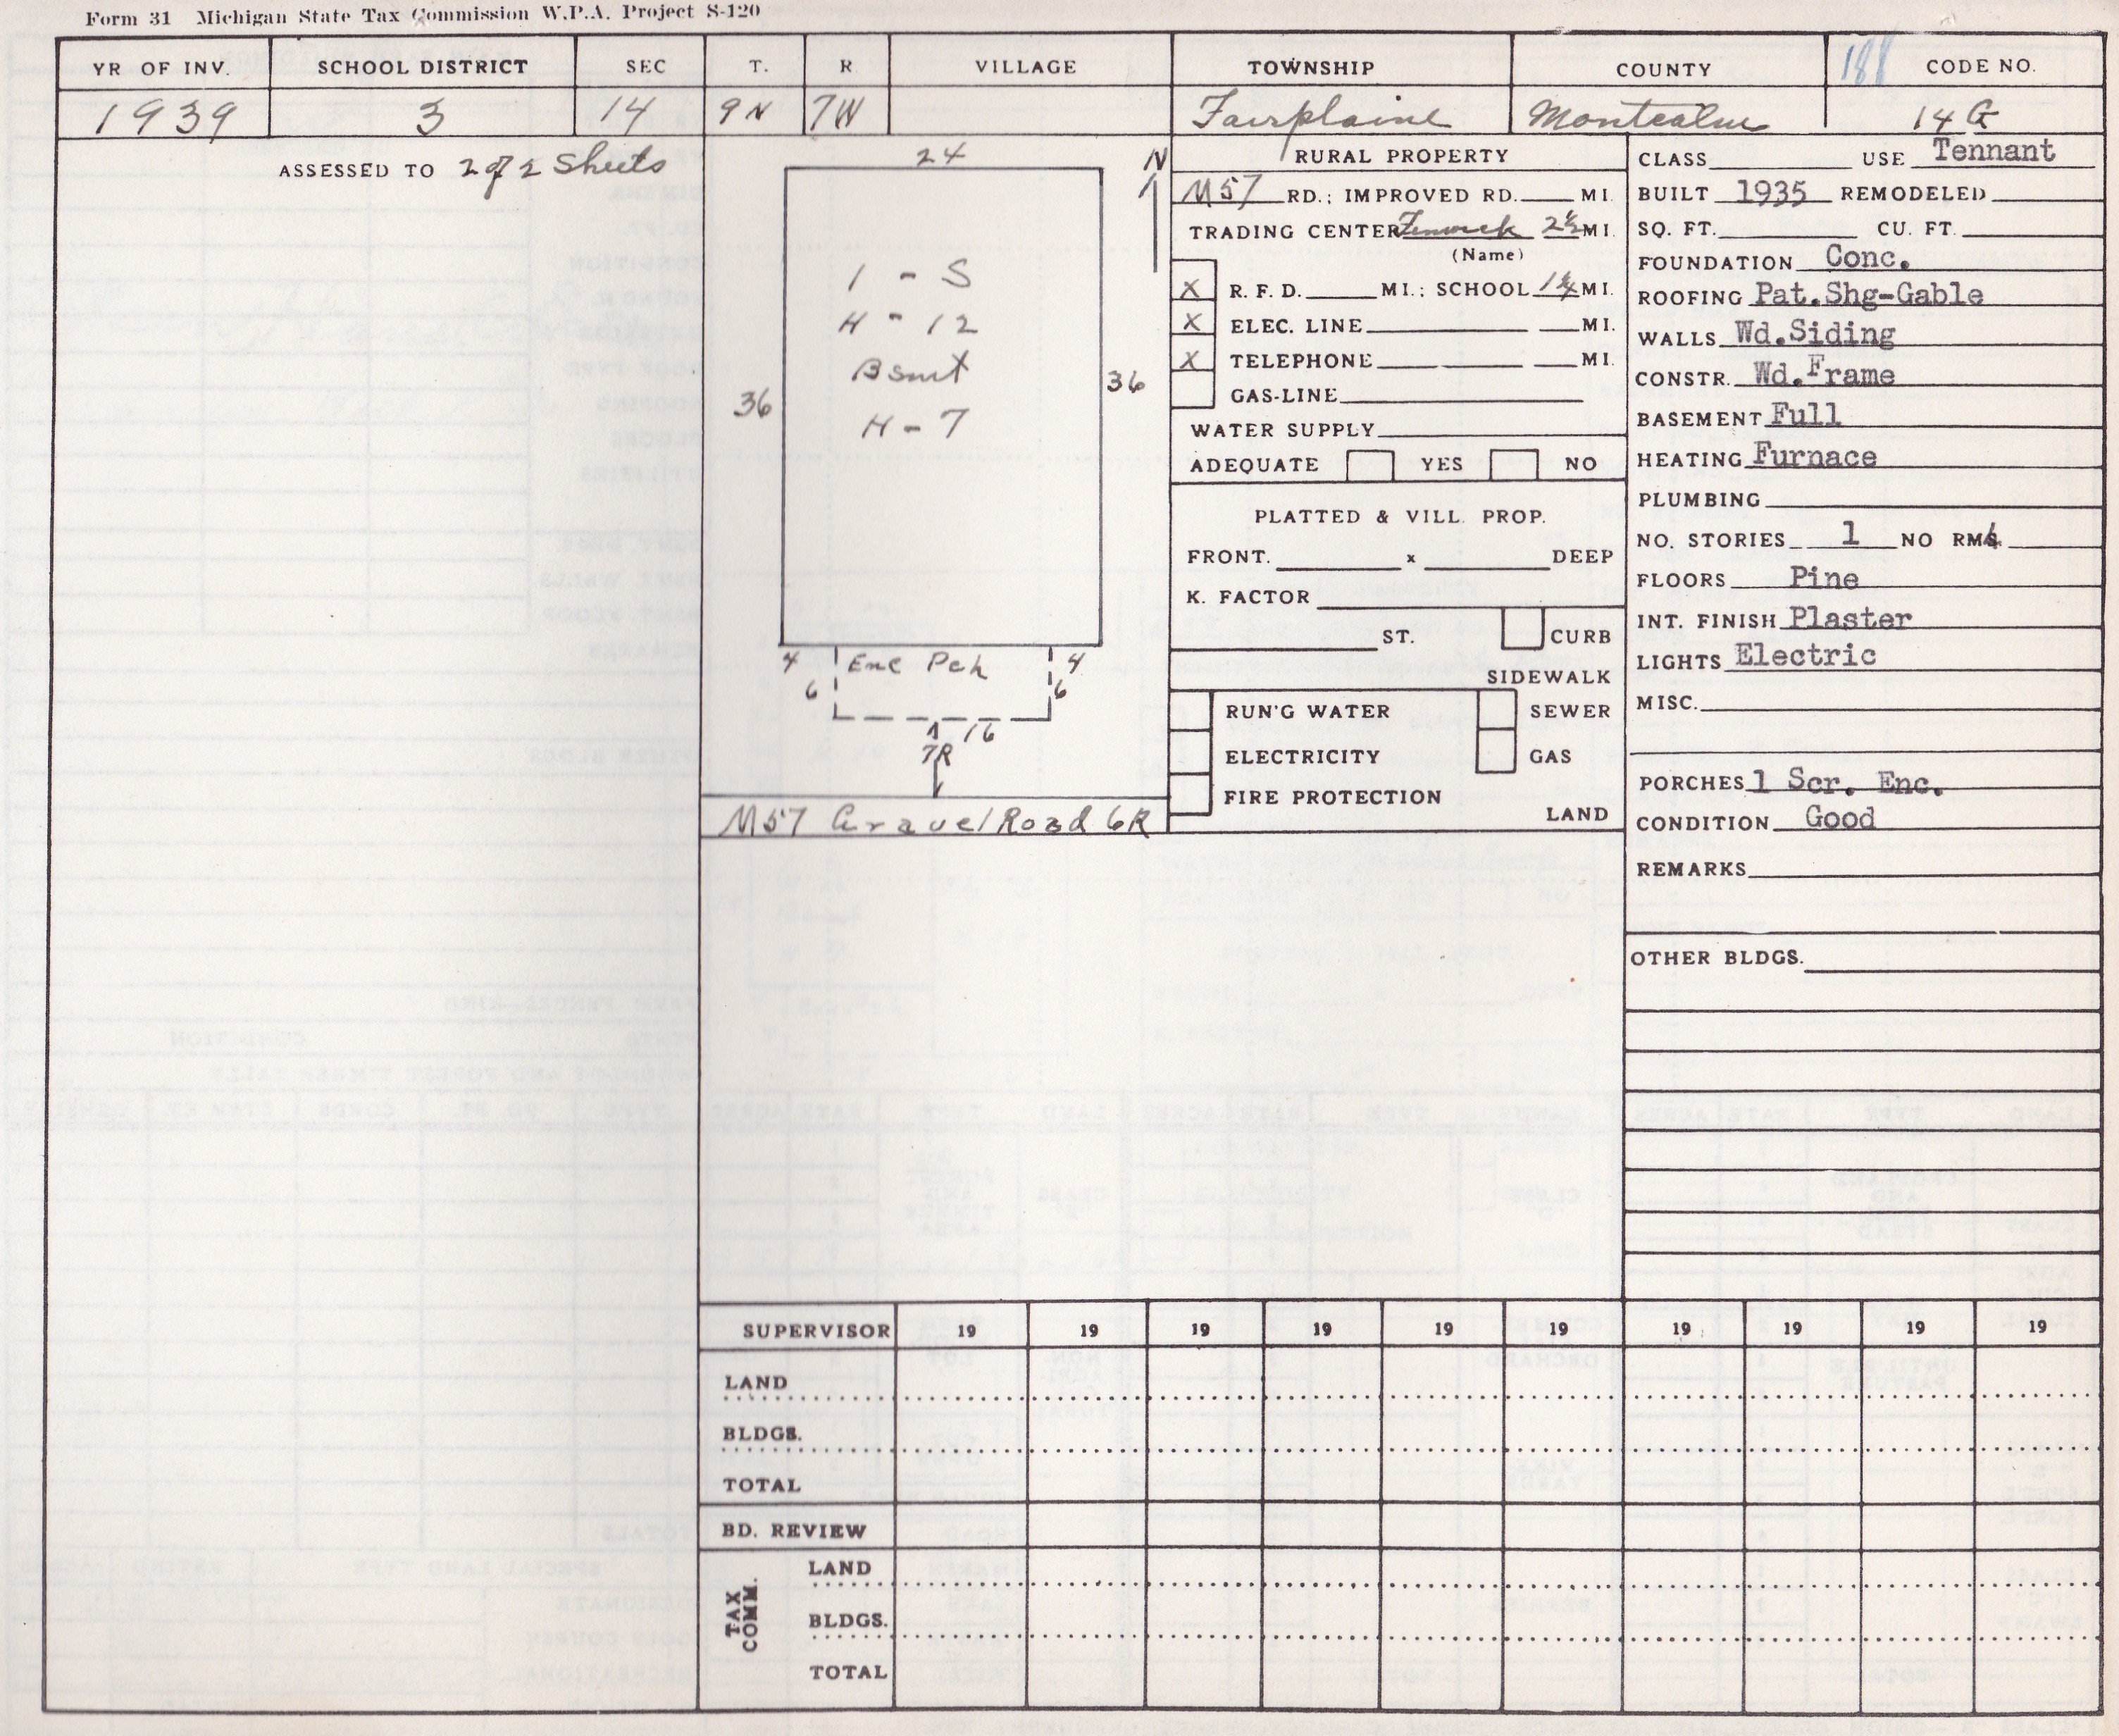 Form 31 Michigan State Tax Commission W.P.A. Project S-120
YR OF INV. SCHOOL DISTRICT SEC T. R VILLAGE TOWNSHIP COUNTY 188 CODE NO.
1939 3 14 9N 7W Fairplaine Montcalm 14 G
ASSESSED TO 2 of 2 Sheets
24
N
1 - S
H - 12
Bsmt
H - 7
36
36
4 Enc Pch 4
6 6
16
7R
M57 Gravel Road 6R
RURAL PROPERTY
M57 RD.; IMPROVED RD. MI.
TRADING CENTER Fenwick 2½ MI.
(Name)
X R. F. D. MI.; SCHOOL 1¼ MI.
X ELEC. LINE MI.
X TELEPHONE MI.
GAS-LINE
WATER SUPPLY
ADEQUATE YES NO
PLATTED & VILL. PROP.
FRONT. x DEEP
K. FACTOR
ST. CURB
SIDEWALK
RUN'G WATER SEWER
ELECTRICITY GAS
FIRE PROTECTION
LAND
CLASS USE Tennant
BUILT 1935 REMODELED
SQ. FT. CU. FT.
FOUNDATION Conc.
ROOFING Pat.Shg-Gable
WALLS Wd.Siding
CONSTR. Wd.Frame
BASEMENT Full
HEATING Furnace
PLUMBING
NO. STORIES 1 NO RMS. 6
FLOORS Pine
INT. FINISH Plaster
LIGHTS Electric
MISC.
PORCHES 1 Scr. Enc.
CONDITION Good
REMARKS
OTHER BLDGS.
SUPERVISOR 19 19 19 19 19 19 19 19 19 19
LAND
BLDGS.
TOTAL
BD. REVIEW
TAX COMM.
LAND
BLDGS.
TOTAL